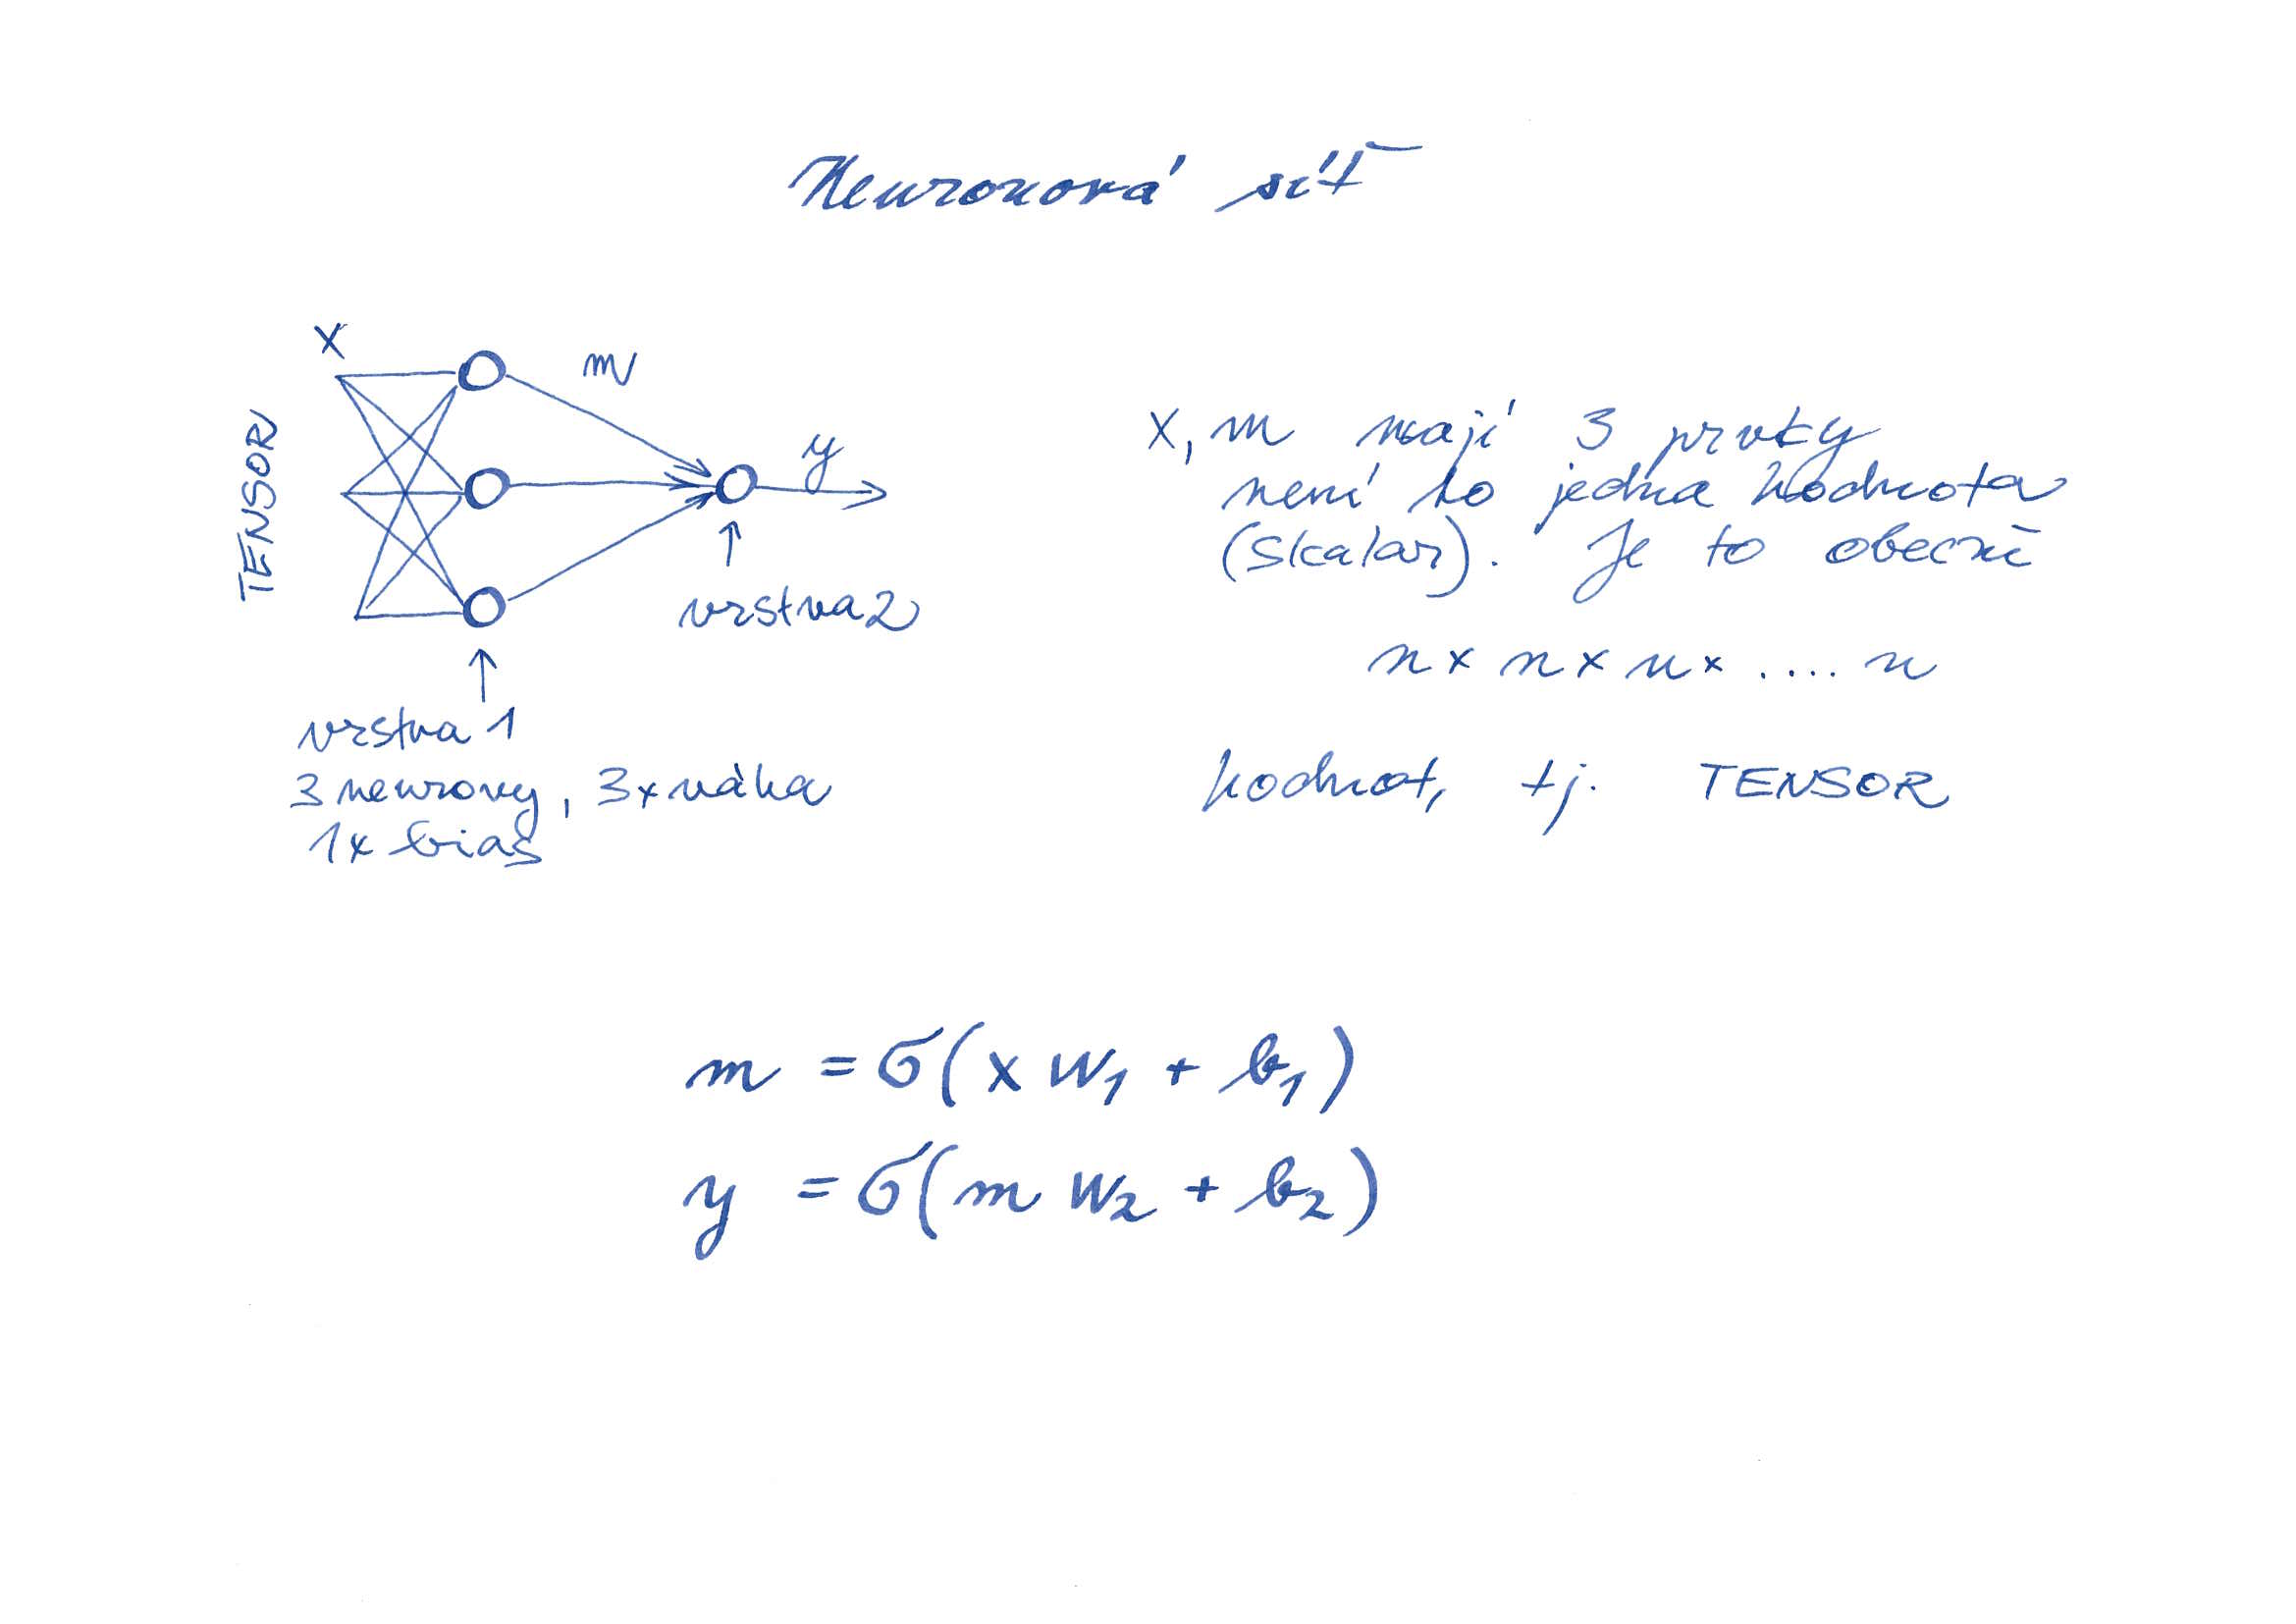 Neuronová síť
x
m
TENSOR
y
vrstva 2
vrstva 1
3 neurony, 3x váha
1x bias
x, m mají 3 prvky
není to jedna hodnota
(skalar). Je to obecně
n x n x n x .... n
hodnot, tj. TENSOR
m = σ(x w₁ + b₁)
y = σ(m w₂ + b₂)